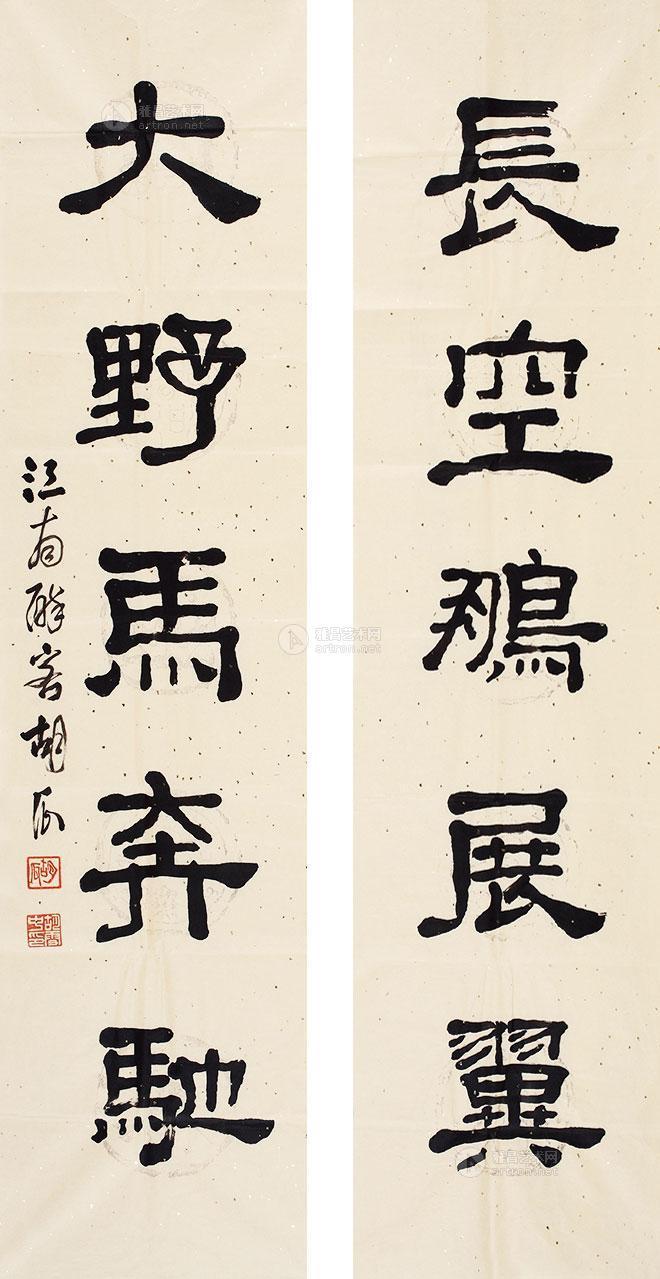 長空鵬展翼
大野馬奔馳
江南醉客胡
雅昌艺术网
artron.net
雅昌艺术网
artron.net
雅昌艺术网
artron.net